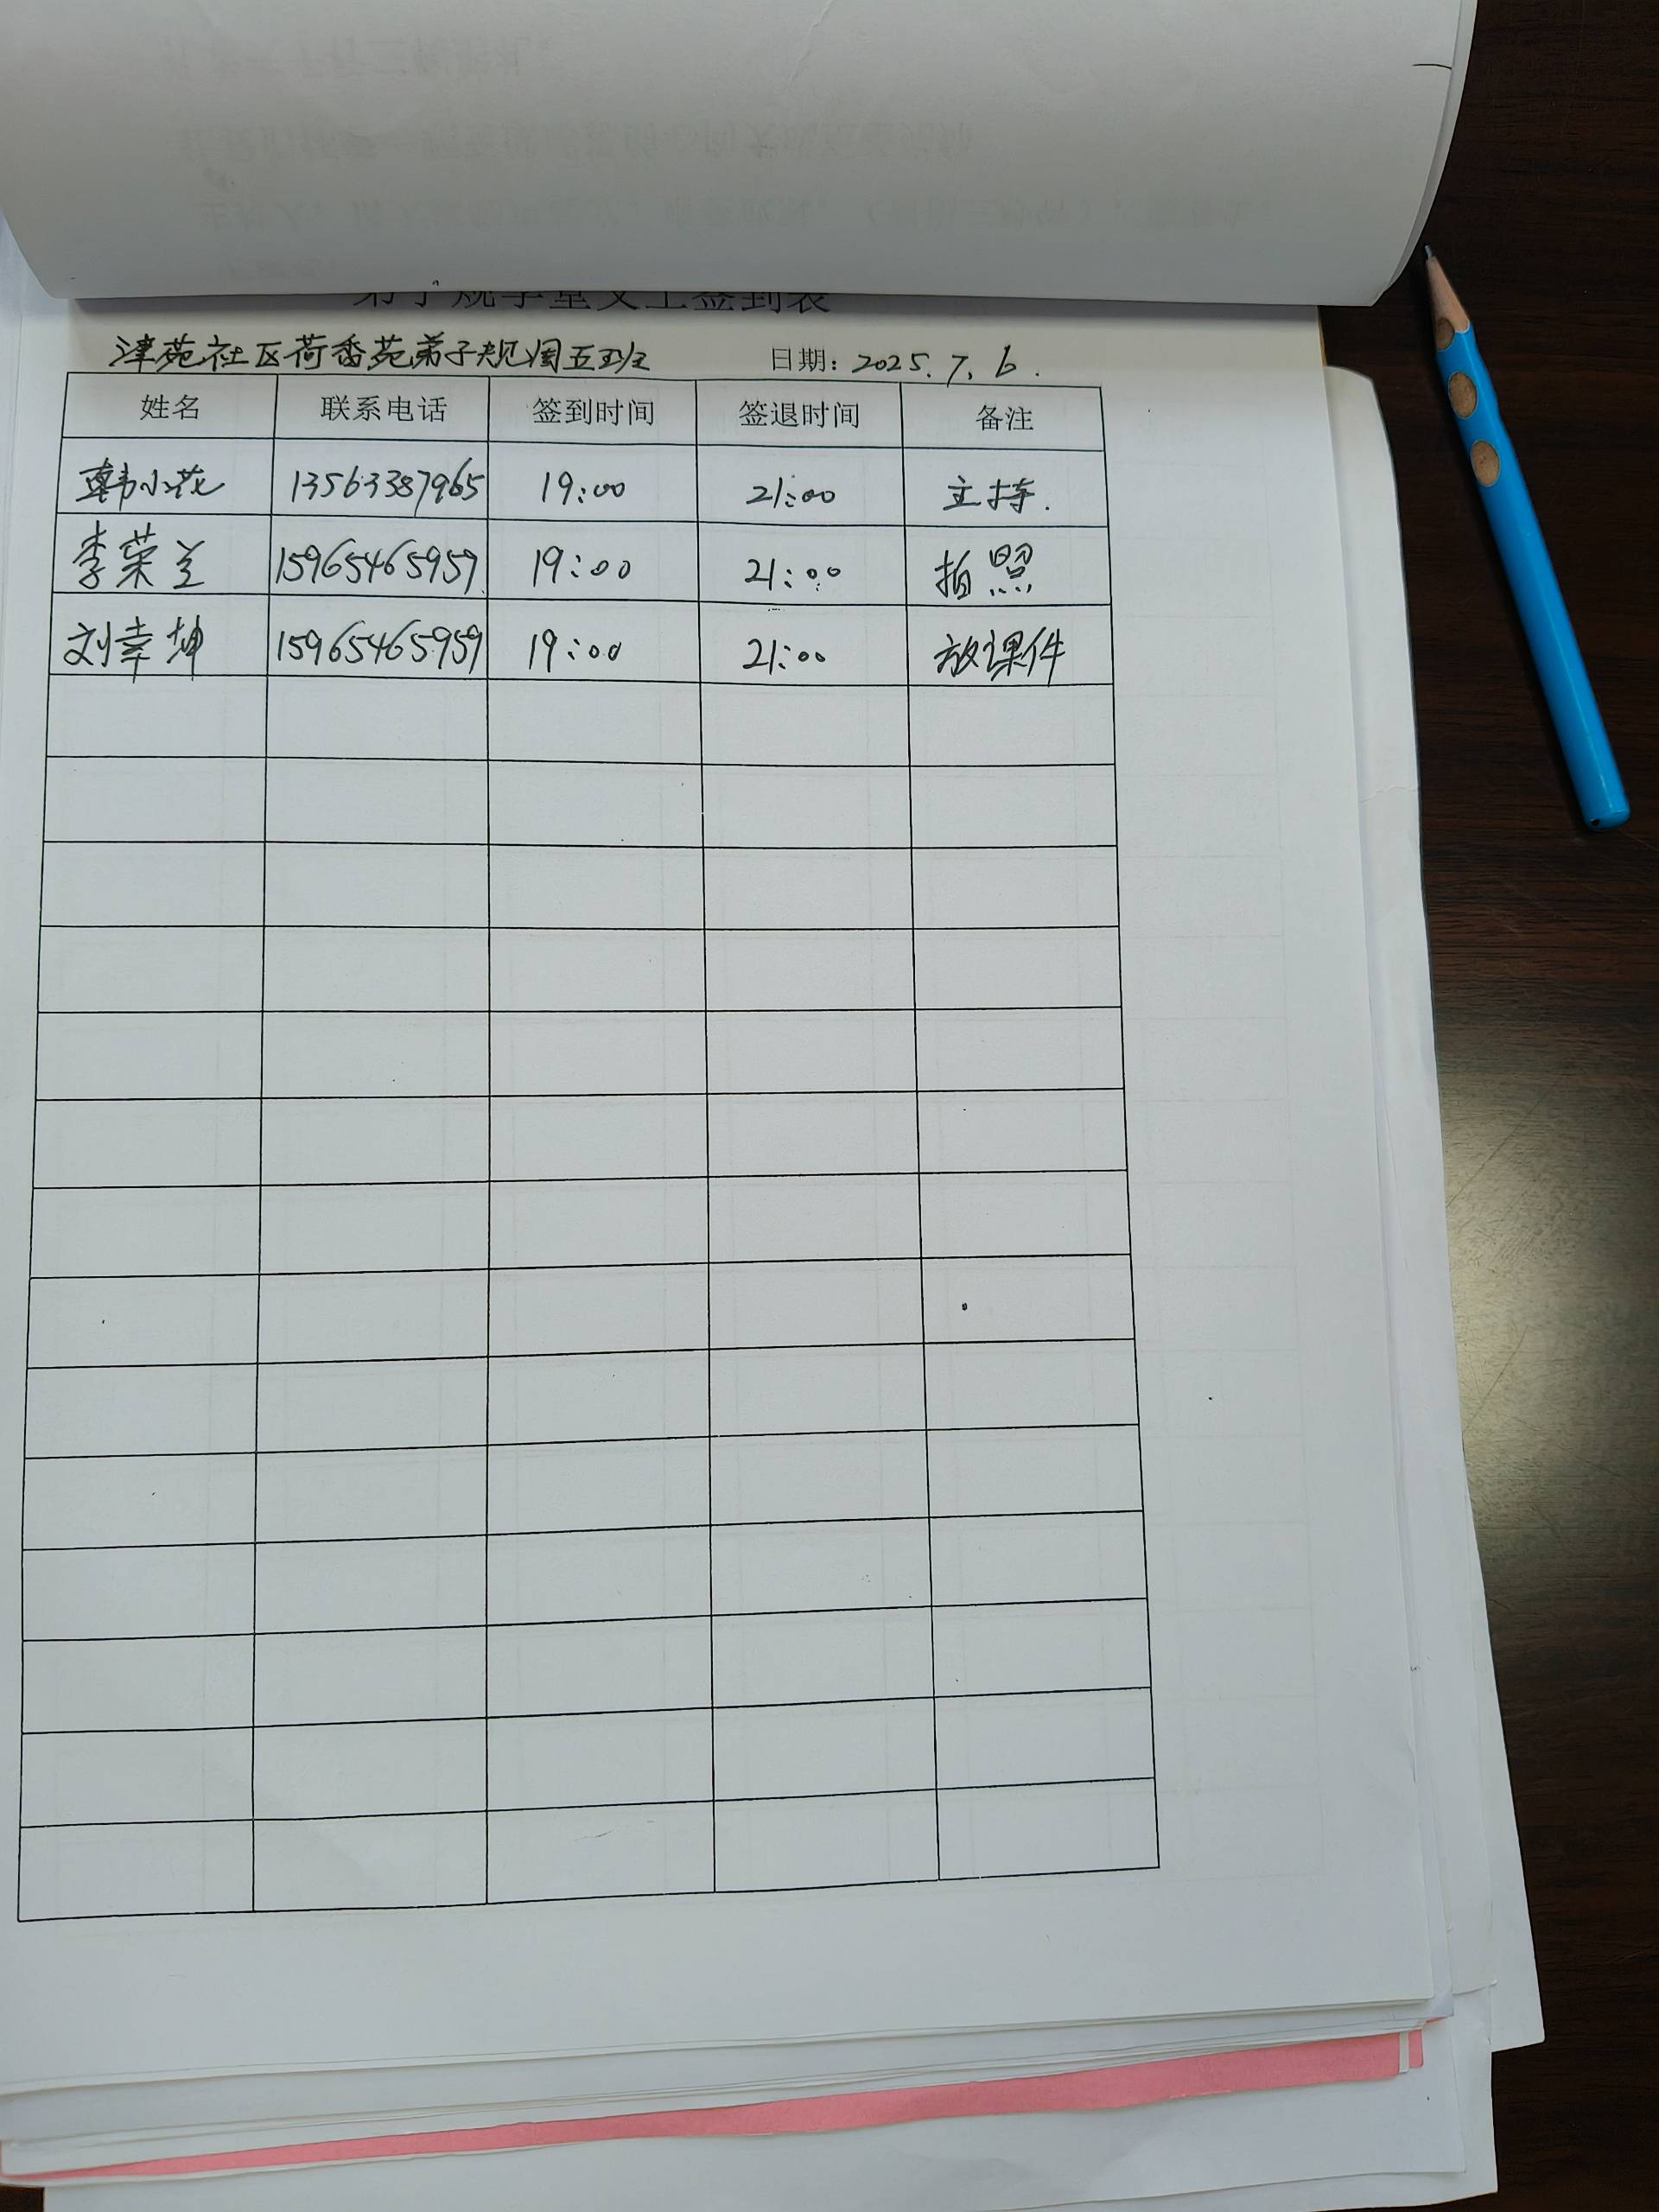 弟子规学堂义工签到表
津苑社区荷香苑弟子规周五班 日期：2025.7.6.
姓名 联系电话 签到时间 签退时间 备注
韩小花 13563387965 19:00 21:00 主持.
李荣兰 15965465959 19:00 21:00 拍照
刘幸坤 15965465959 19:00 21:00 放课件